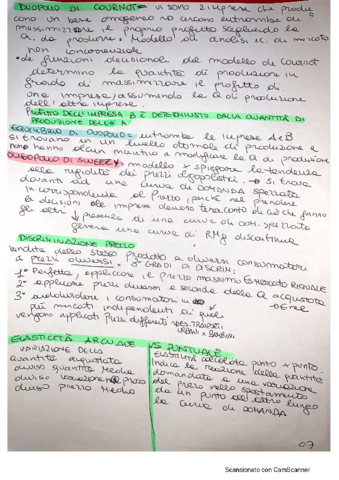 DUOPOLIO DI COURNOT → VI SONO 2 IMPRESE CHE PRODU
CONO UN BENE OMOGENEO
MASSIMIZZARE IL PROPRIO PROFITTO SCEGLIENDO LA
Q. DA PRODURRE. MODELLO DI ANALISI DI MERCATO
NON CONCORRENZIALE
• LE FUNZIONI DECISIONALI DEL MODELLO DI COURNOT
DETERMINANO LA QUANTITÀ DI PRODUZIONE IN
GRADO DI MASSIMIZZARE IL PROFITTO DI
UNA IMPRESA, ASSUMENDO LA Q DI PRODUZIONE
DELL'ALTRA IMPRESA.
PROFITTO DELL'IMPRESA B È DETERMINATO DALLA QUANTITÀ DI
PRODUZIONE DELLA A
EQUILIBRIO DI DUOPOLIO = ENTRAMBE LE IMPRESE A E B
SI TROVANO IN UN LIVELLO OTTIMALE DI PRODUZIONE E
NON HANNO ALCUN MOTIVO A MODIFICARE LA Q DI PRODUZIONE
OLIGOPOLIO DI SWEEZY = MODELLO × SPIEGARE LA TENDENZA
ALLA RIGIDITÀ DEI PREZZI OLIGOPOLISTICI → SI TROVA
DAVANTI AD UNA CURVA DI DOMANDA SPEZZATA
IN CORRISPONDENZA AL PREZZO, PERCHÉ NEL PRENDERE
LE DECISIONI LE IMPRESE DEVONO TENERE CONTO DI CIÒ CHE FANNO
GLI ALTRI ↓ PRESENZA DI UNA CURVA DI DOM. SPEZZATA
GENERA UNA CURVA DI RMG DISCONTINUA
DISCRIMINAZIONE PREZZO
VENDITA DELLO STESSO PRODOTTO A DIVERSI CONSUMATORI
A PREZZI DIVERSI = 3 GRADI DI DISCRIM:
1° PERFETTA, APPLICARE IL PREZZO MASSIMO
2° APPLICARE PREZZI DIVERSI A SECONDA DELLA Q ACQUISTATA
3° SUDDIVIDERE I CONSUMATORI IN
PIÙ MERCATI INDIPENDENTI AI QUALI
VENGONO APPLICATI PREZZI DIFFERENTI → ES. TRASPORTI
URBANI × BAMBINI
ELASTICITÀ ARCUALE VS PUNTUALE
VARIAZIONE DELLA
QUANTITÀ ACQUISTATA
DIVISO QUANTITÀ MEDIA
DIVISO VARIAZIONE DEL PREZZO
DIVISO PREZZO MEDIO
ELASTICITÀ CALCOLATA PUNTO × PUNTO
INDICA LA REAZIONE DELLA QUANTITÀ
DOMANDATA A UNA VARIAZIONE
DEL PREZZO NELLO SPOSTAMENTO
DA UN PUNTO ALL'ALTRO LUNGO
LA CURVA DI DOMANDA
07
Scansionato con CamScanner